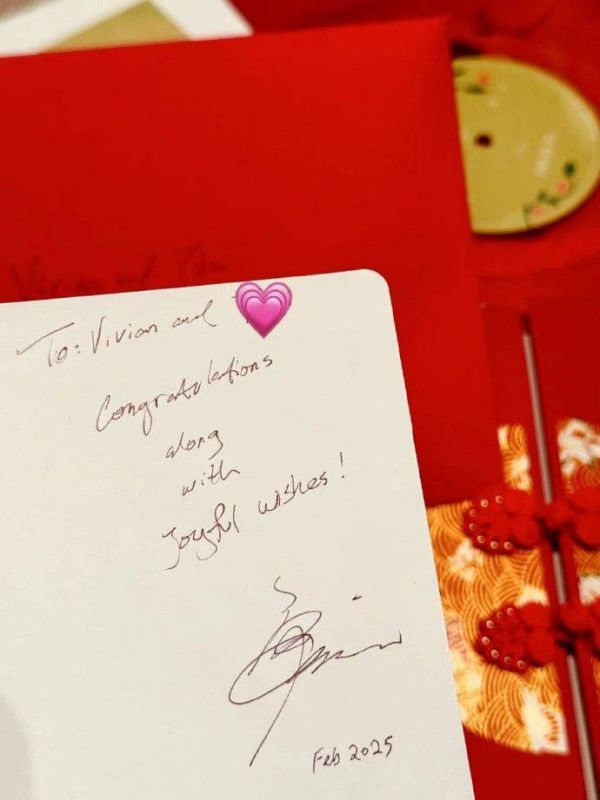 Vivian and
To: Vivian and
Congratulations
along
with
Joyful wishes!
Feb 2025